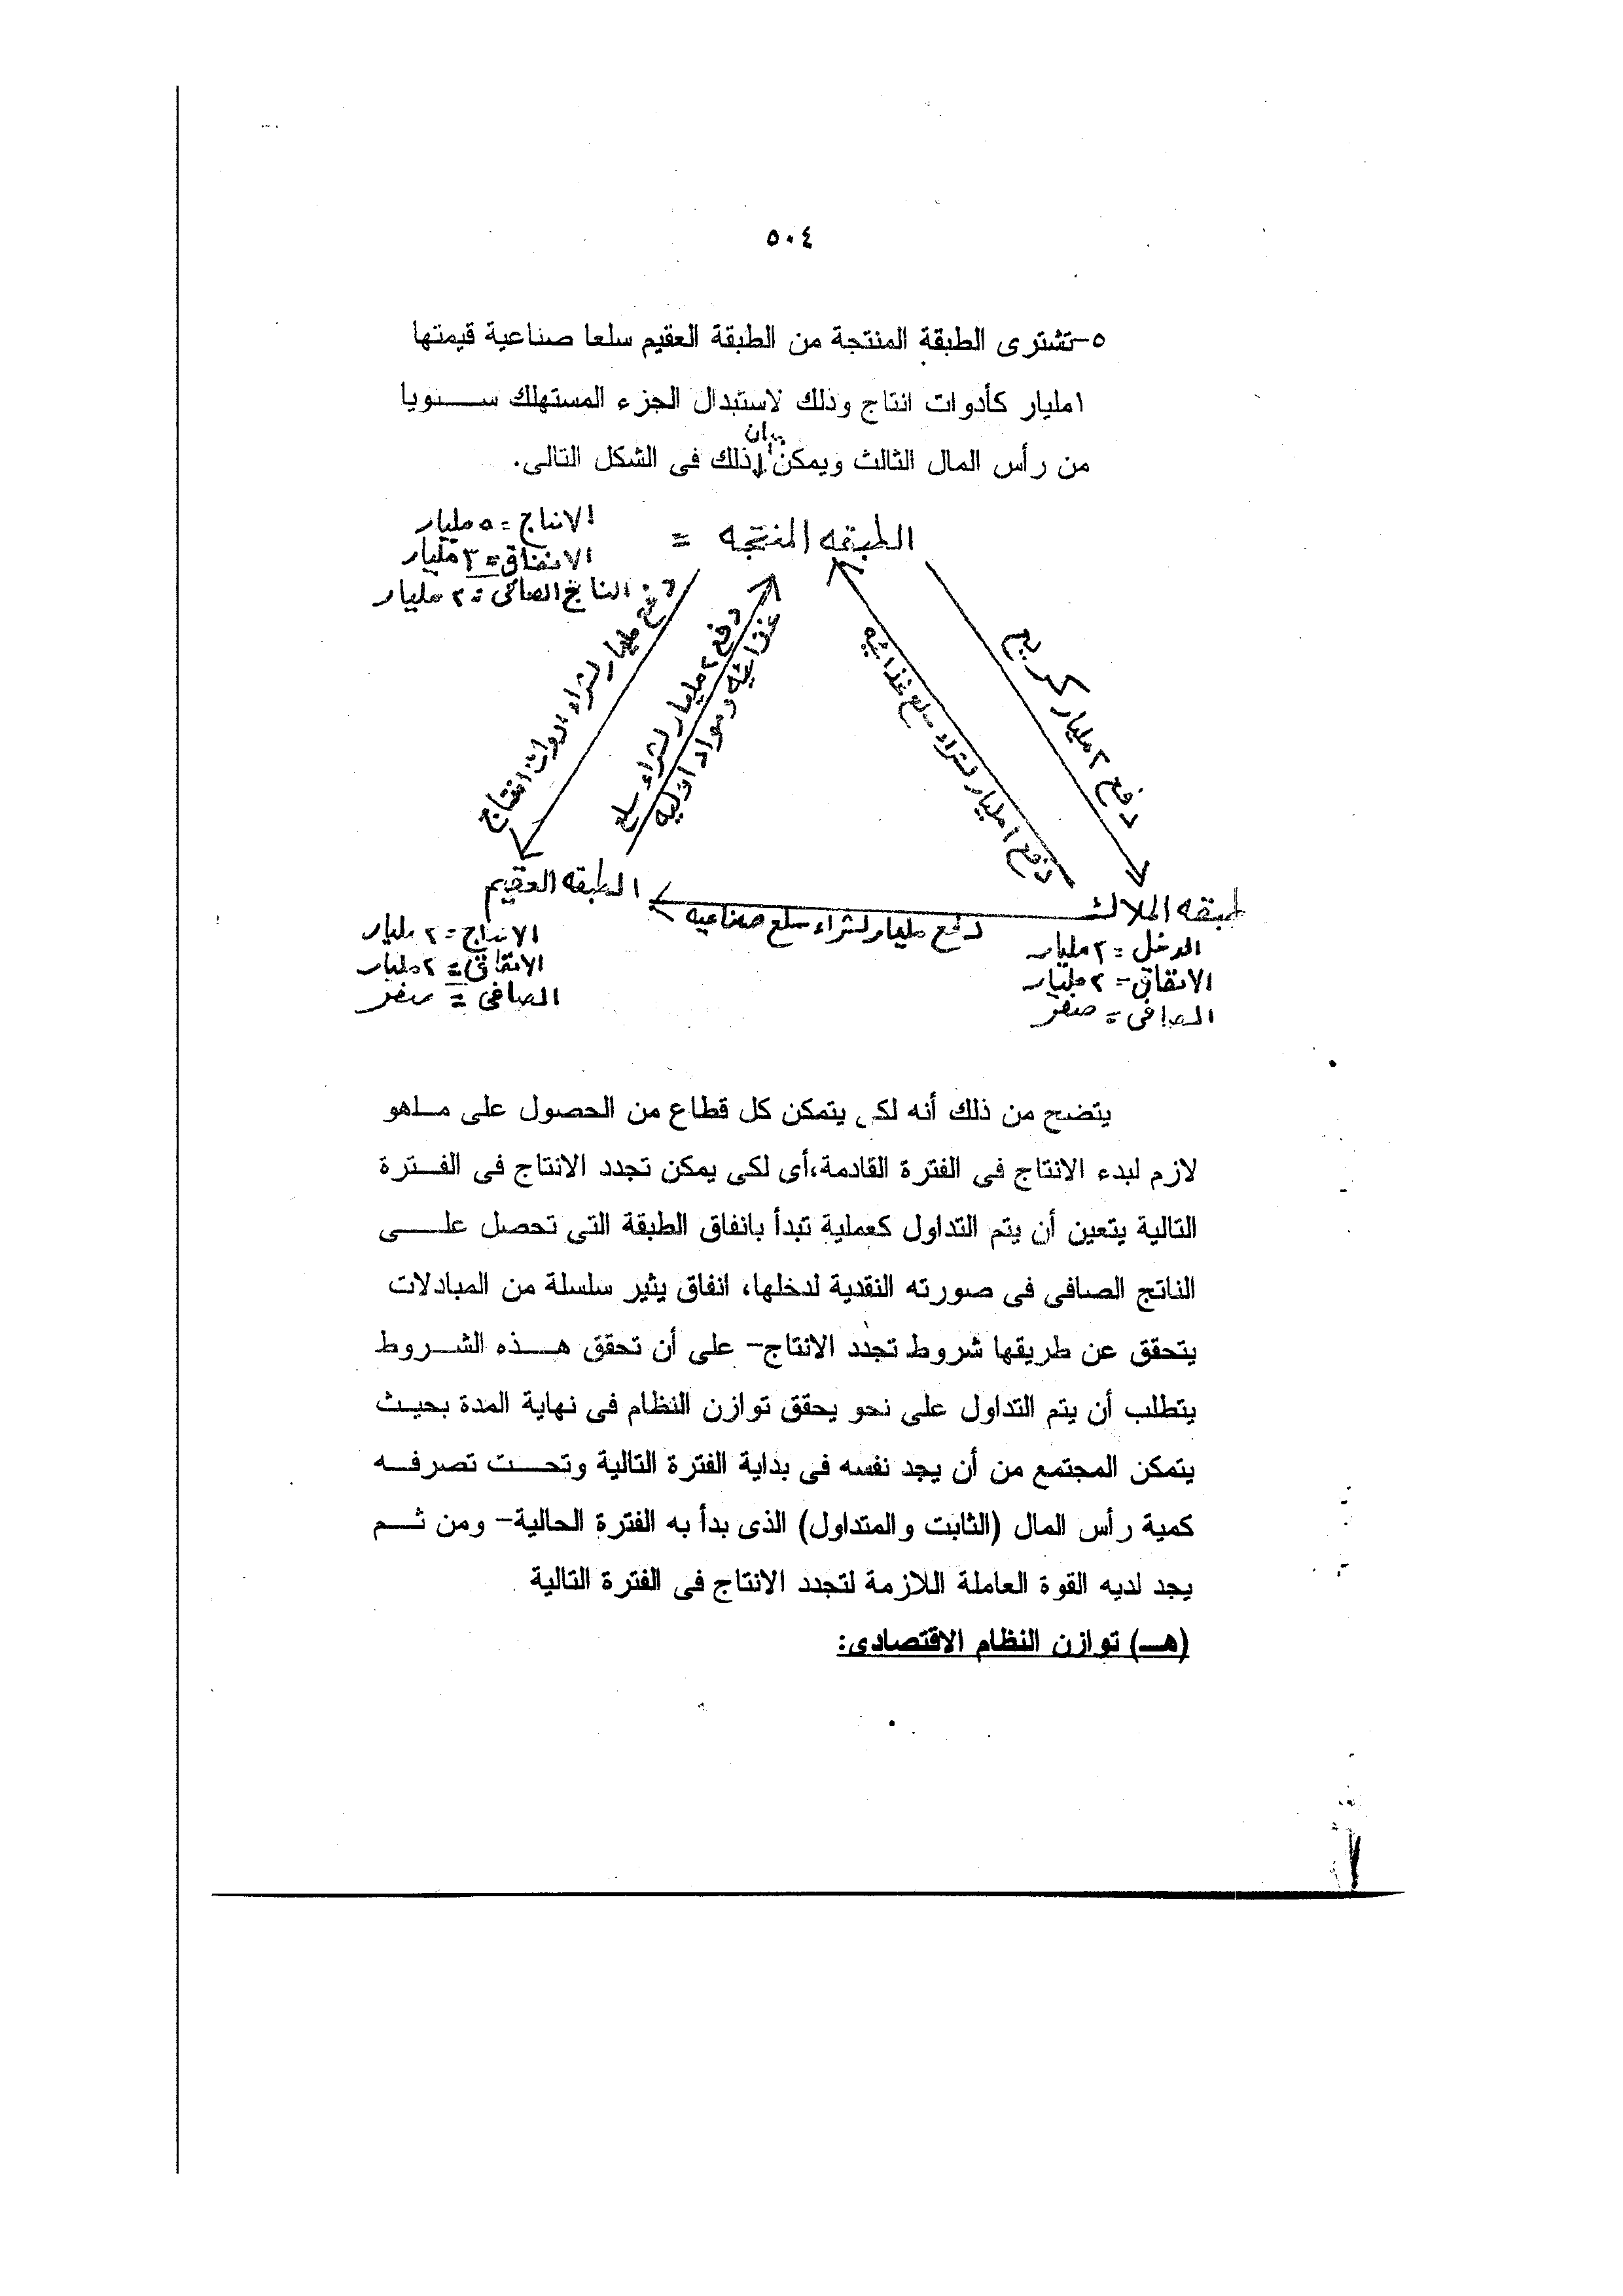 ٥٠٤
٥-تشترى الطبقة المنتجة من الطبقة العقيم سلعا صناعية قيمتها
١مليار كأدوات انتاج وذلك لاستبدال الجزء المستهلك سنويا
من رأس المال الثالث ويمكن بيان ذلك فى الشكل التالى.
الطبقه المنتجه =
الانتاج = ٥ مليار
الانفاق = ٣ مليار
الناتج الصافى = ٢ مليار
دفع مليار لشراء ادوات انتاج
دفع ٢ مليار لشراء سلع
غذائيه ومواد اوليه
دفع ١ مليار لشراء سلع غذائيه
دفع ٢ مليار كريع
الطبقه العقيم
دفع مليار لشراء سلع صناعيه
طبقه الملاك
الانتاج = ٢ مليار
الانفاق = ٢ مليار
الصافى = صفر
الدخل = ٢ مليار
الانفاق = ٢ مليار
الصافى = صفر
يتضح من ذلك أنه لكى يتمكن كل قطاع من الحصول على ماهو
لازم لبدء الانتاج فى الفترة القادمة،أى لكى يمكن تجدد الانتاج فى الفترة
التالية يتعين أن يتم التداول كعملية تبدأ بانفاق الطبقة التى تحصل على
الناتج الصافى فى صورته النقدية لدخلها، انفاق يثير سلسلة من المبادلات
يتحقق عن طريقها شروط تجدد الانتاج- على أن تحقق هذه الشروط
يتطلب أن يتم التداول على نحو يحقق توازن النظام فى نهاية المدة بحيث
يتمكن المجتمع من أن يجد نفسه فى بداية الفترة التالية وتحت تصرفه
كمية رأس المال (الثابت والمتداول) الذى بدأ به الفترة الحالية- ومن ثم
يجد لديه القوة العاملة اللازمة لتجدد الانتاج فى الفترة التالية
(هـ) توازن النظام الاقتصادى: